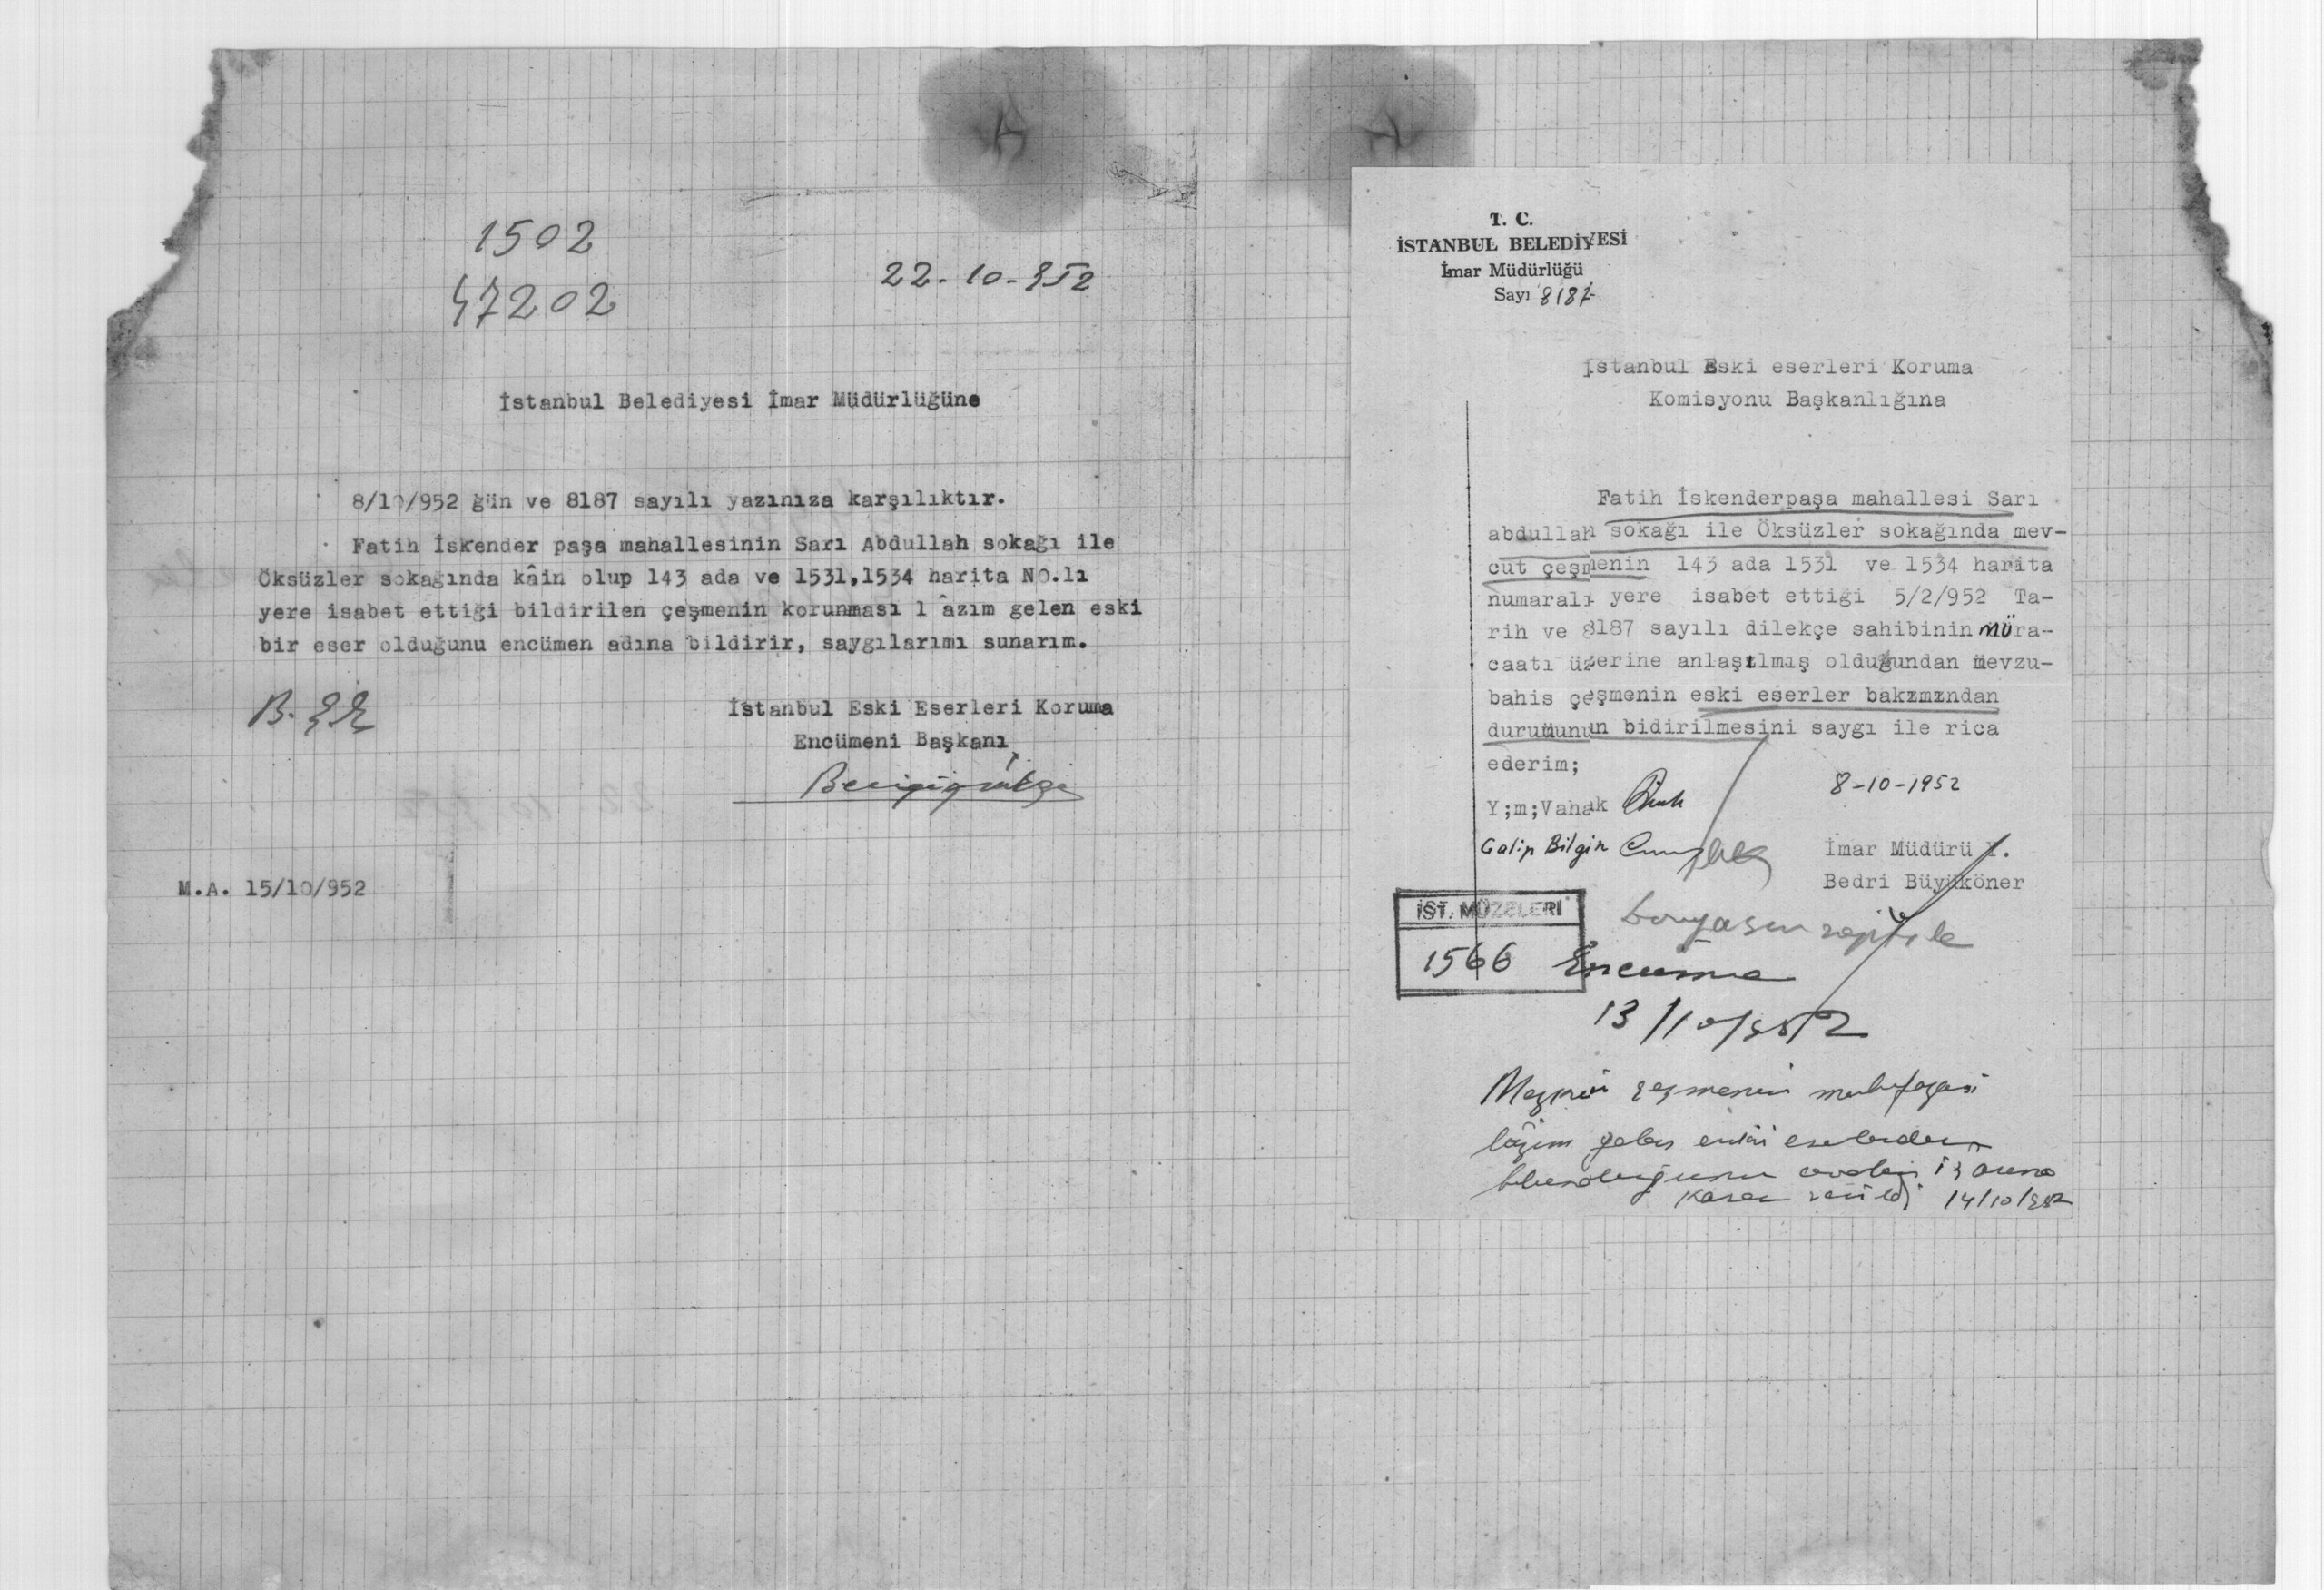 1502
47202
22-10-952
İstanbul Belediyesi İmar Müdürlüğüne
8/10/952 gün ve 8187 sayılı yazınıza karşılıktır.
Fatih İskender paşa mahallesinin Sarı Abdullah sokağı ile
Öksüzler sokağında kâin olup 143 ada ve 1531,1534 harita NO.lı
yere isabet ettiği bildirilen çeşmenin korunması l âzım gelen eski
bir eser olduğunu encümen adına bildirir, saygılarımı sunarım.
B.
İstanbul Eski Eserleri Koruma
Encümeni Başkanı
M.A. 15/10/952
T. C.
İSTANBUL BELEDİYESİ
İmar Müdürlüğü
Sayı 8187
İstanbul Eski eserleri Koruma
Komisyonu Başkanlığına
Fatih İskenderpaşa mahallesi Sarı
abdullah sokağı ile Öksüzler sokağında mev-
cut çeşmenin 143 ada 1531 ve 1534 harita
numaralı yere isabet ettiği 5/2/952 Ta-
rih ve 8187 sayılı dilekçe sahibinin müra-
caatı üzerine anlaşılmış olduğundan mevzu-
bahis çeşmenin eski eserler bakımından
durumunun bidirilmesini saygı ile rica
ederim;
8-10-1952
Y;m;Vahak
Galip Bilgin
İmar Müdürü Y.
Bedri Büyüköner
İST. MÜZELERİ
1566
Encümene
13/10/952
çeşmenin muhafazası
lâzım gelen eserlerden
bulunduğunun
karar verildi 14/10/952